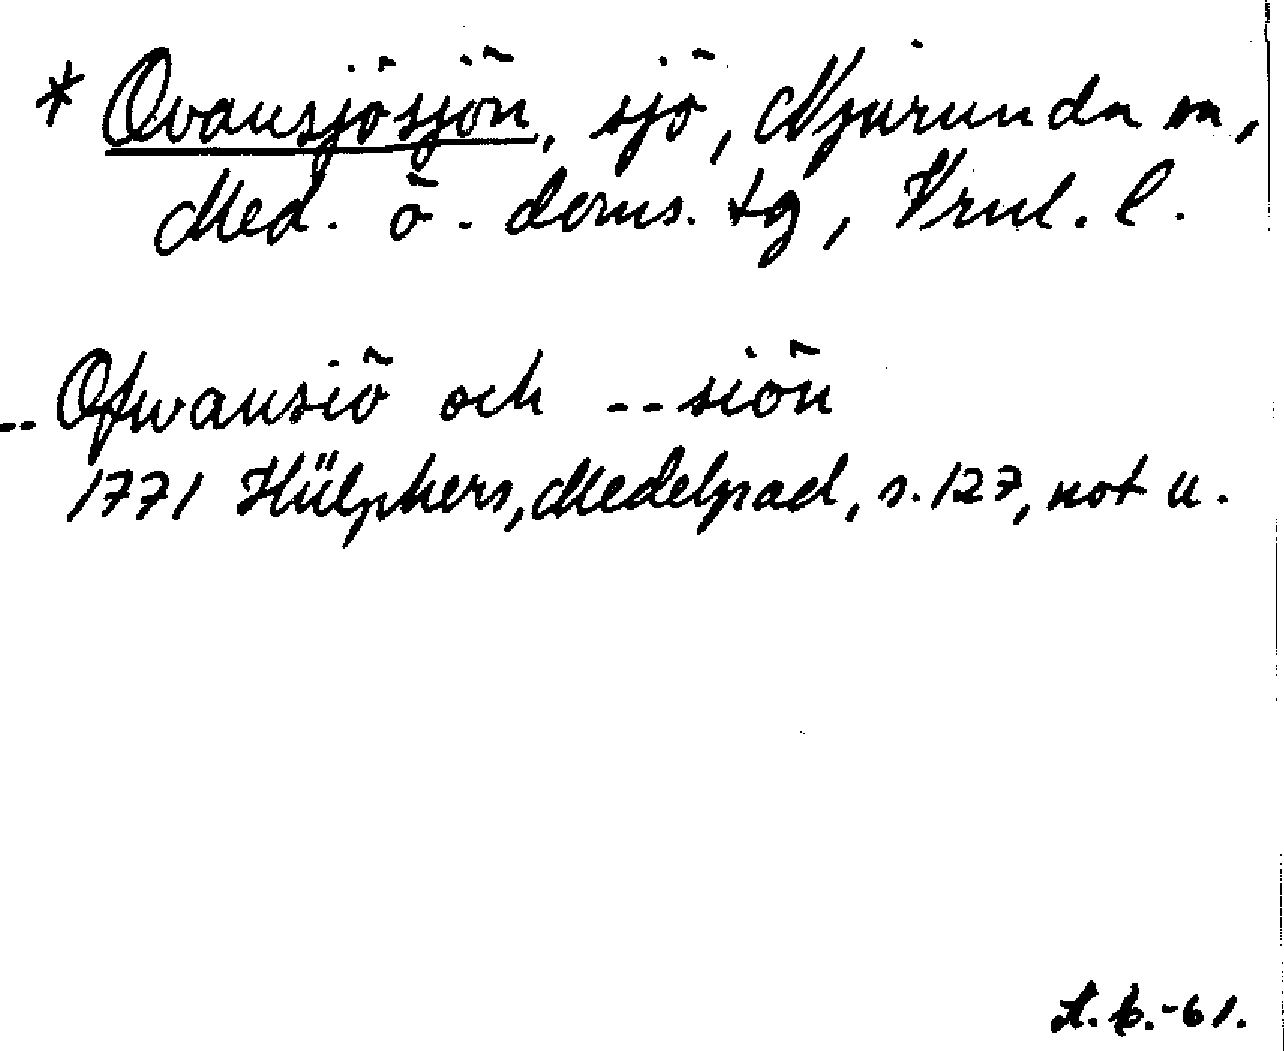 * Ovansjösjön, sjö, Njurunda sn,
Med. ö. doms. tg, Vrnl. l.
-- Ofwansiö och --siön
1771 Hülphers, Medelpad, s. 127, not u.
A. B. -61.